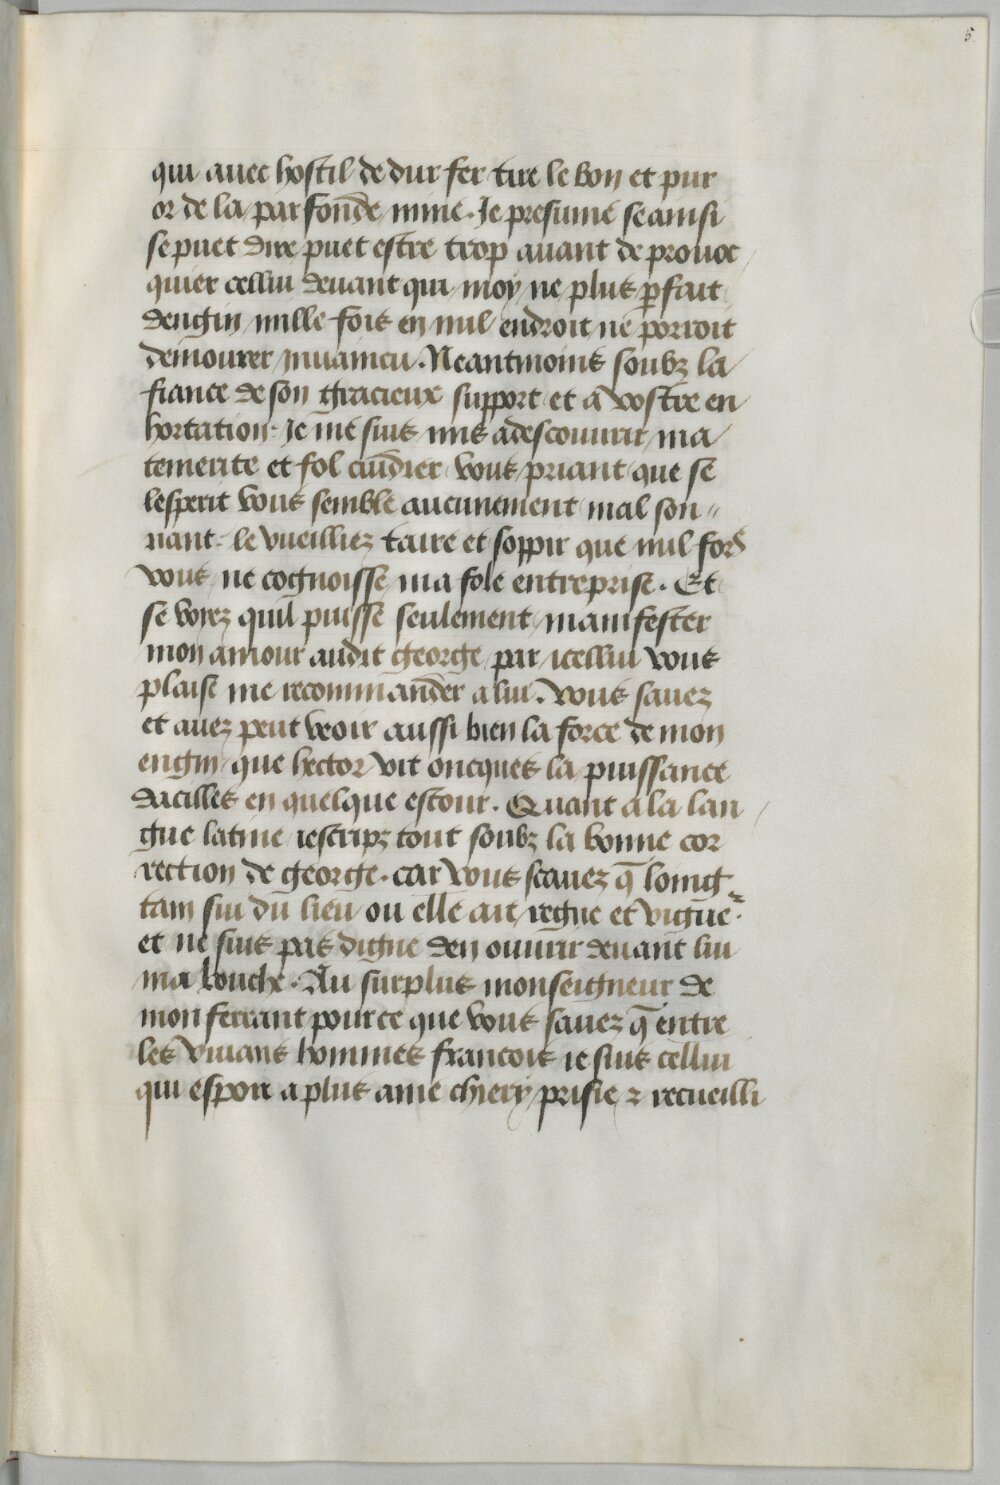 5
qui auec hostil de dur fer tire le bon et pur
or de la parfonde mine. Je presume se ainsi
se puet dire puet estre trop auant de prouoc
quier cellui deuant qui moy ne plus p̱fait
dengin mille fois en mil endroit ne porroit
demourer inuaincu. Neantmoins soubz la
fiance de son gracieux support et a vostre en
hortation. Je me suis mis a descouurir ma
temerite et fol cuidier vous priant que se
lesperit vous semble aucunement mal son〃
nant. le vueilliez taire et soppir que nul fors
vous ne cognoisse ma fole entreprise. Et
se voyez quil puisse seulement manifester
mon amour audit george par icellui vous
plaise me recommander a lui. vous sauez
et auez peut veoir aussi bien la force de mon
engin que hector vit oncques la puissance
dacilles en quelque estour. Quant a la lan
gue latine iescripz tout soubz la bonne cor
rection de george. car vous scauez q̄ loing〃
tain sui du lieu ou elle ait regne et vigue.
et ne suis pas digne den ouurir deuant lui
ma bouche. Au surplus monseigneur de
monferrant pource que vous sauez q̄ entre
les viuans hommes francois ie suis cellui
qui espoir a plus ame chiery prisie ⁊ recueilli